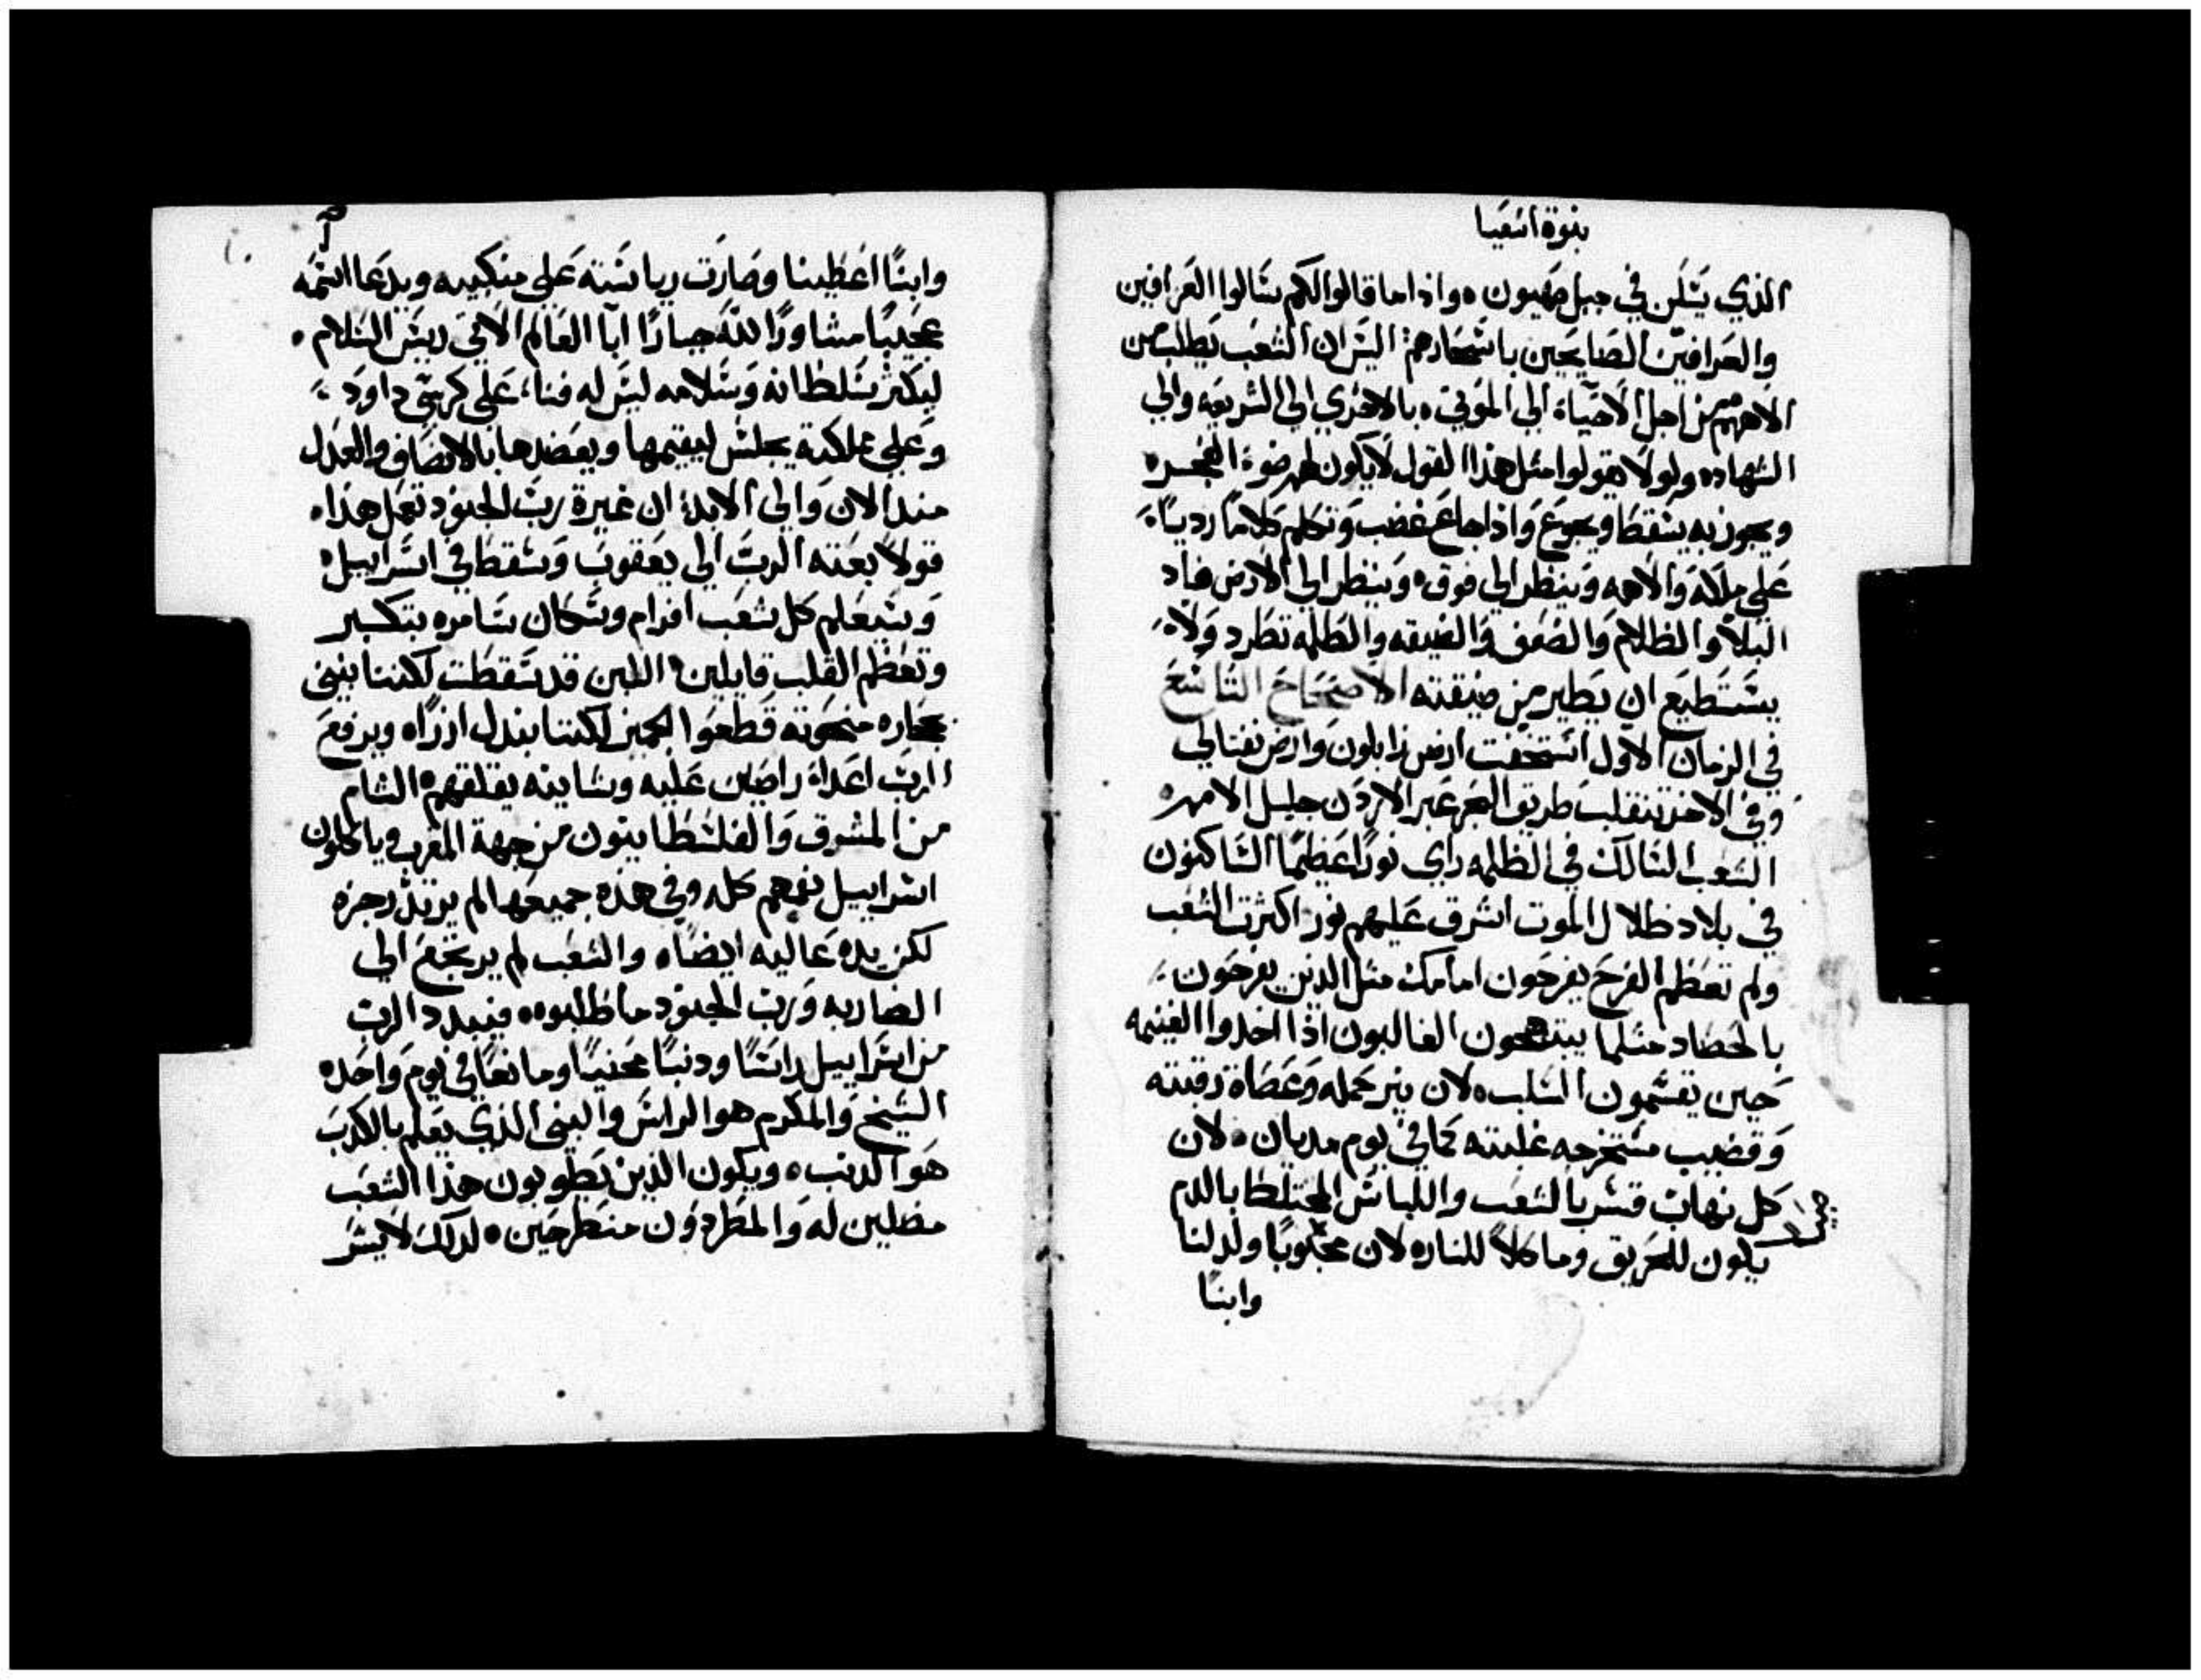 نبوة اشعيا
الذي يسكن في جبل صهيون ٠ واذا ما قالوا لكم سالوا العرافين
والعرافين الصايحين باسحارهم اليس ان الشعب يطلب من
الاههم من اجل الاحياء الي الموتي ٠ بالاحري الي الشريعه والي
الشهاده ولو لا يقولوا مثل هذا القول لا يكون لهم ضوء الفجر ٠
ويجوز به يسقط ويجوع واذا جاع غضب وتكلم كلاما رديا
علي ملكه والاهه وينظر الي فوق ٠ وينظر الي الارض فاد
البلا والظلام والضعف والضيقه والظلمه تطرد ولا
يستطيع ان يطير من ضيقته الاصحاح التاسع
في الزمان الاول استخفت ارض زابلون وارض نفتالي
وفي الاخر تنقلب طريق البحر عبر الاردن جليل الامم ٠
الشعب السالك في الظلمه راي نورا عظيما الساكنون
في بلاد ظلال الموت اشرق عليهم نور اكثرت الشعب
ولم تعظم الفرح يفرحون امامك مثل الذين يفرحون
بالحصاد مثلما يبتهجون الغالبون اذا اخدوا الغنيمه
حين يقسمون السلب ٠ لان نير حمله وعصاة رقبته
وقضيب مستخرجه غلبته كما في يوم مديان ٠ لان
كل نهاب قسر بالشعب واللباس المختلط بالدم
يكون للحريق وماكلا للنار ٠ لان محبوبا ولد لنا
وابنا
وابنا اعطينا وصارت رياسته علي منكبيه ويدعا اسمه
عجيبا مشاورا لله جبارا ابا العالم الاتي ريس السلام ٠
ليكثر سلطانه وسلامه ليس له فنا، علي كرسي داود
وعلي مملكته يجلس ليقيمها ويعضدها بالانصاف والعدل
مند الان والي الابد ان غيرة رب الجنود تعمل هذا ٠
قولا بعته الرب الي يعقوب وسقط في اسراييل ٠
وسيعلم كل شعب افرام وسكان سامره بتكبر
وتعظم القلب قايلين اللبن قد سقطت لكننا نبني
بحجاره منحوته قطعوا الجميز لكننا نبدل ارزا ٠ ويرفع
الرب اعداء راصين عليه وشاينه يقلقهم ٠ الشام
من المشرق والفلسطانيون من جهة المغرب وياكلون
اسراييل بفمهم كله وفي هذه جميعها لم يرتد رجزه
لكن يده عاليه ايضا ٠ والشعب لم يرتجع الي
الضاربه ورب الجنود ما طلبوه ٠ فيبدد الرب
من اسراييل راسا ودنبا محنيا وما نعا في يوم واحد ٠
الشيخ والمكرم هو الراس والنبي الذي يعلم بالكدب
هو الدنب ٠ ويكون الذين يطوبون هذا الشعب
مضلين له والمطردون منطرحين ٠ لدلك لا يسر